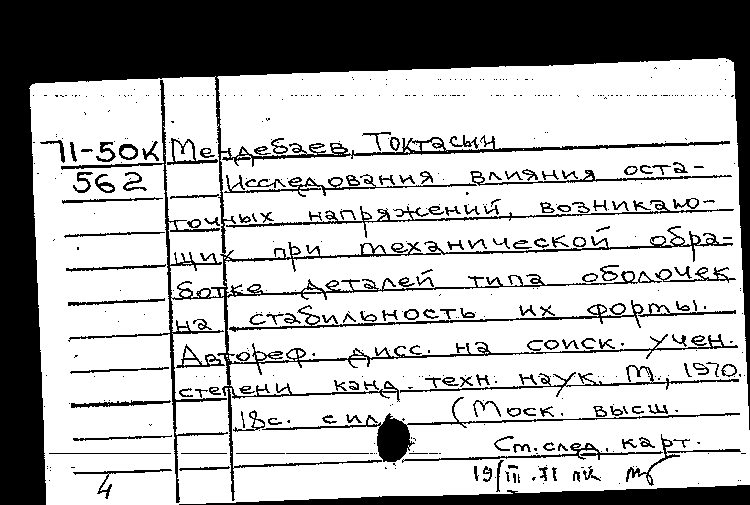 71-50к Мендебаев, Токтасын
562 Исследования влияния оста-
точных напряжений, возникаю-
щих при механической обра-
ботке деталей типа оболочек
на стабильность их формы.
Автореф. дисс. на соиск. учен.
степени канд. техн. наук. М., 1970.
18с. с илл. (Моск. высш.
См. след. карт.
4 19/III.71